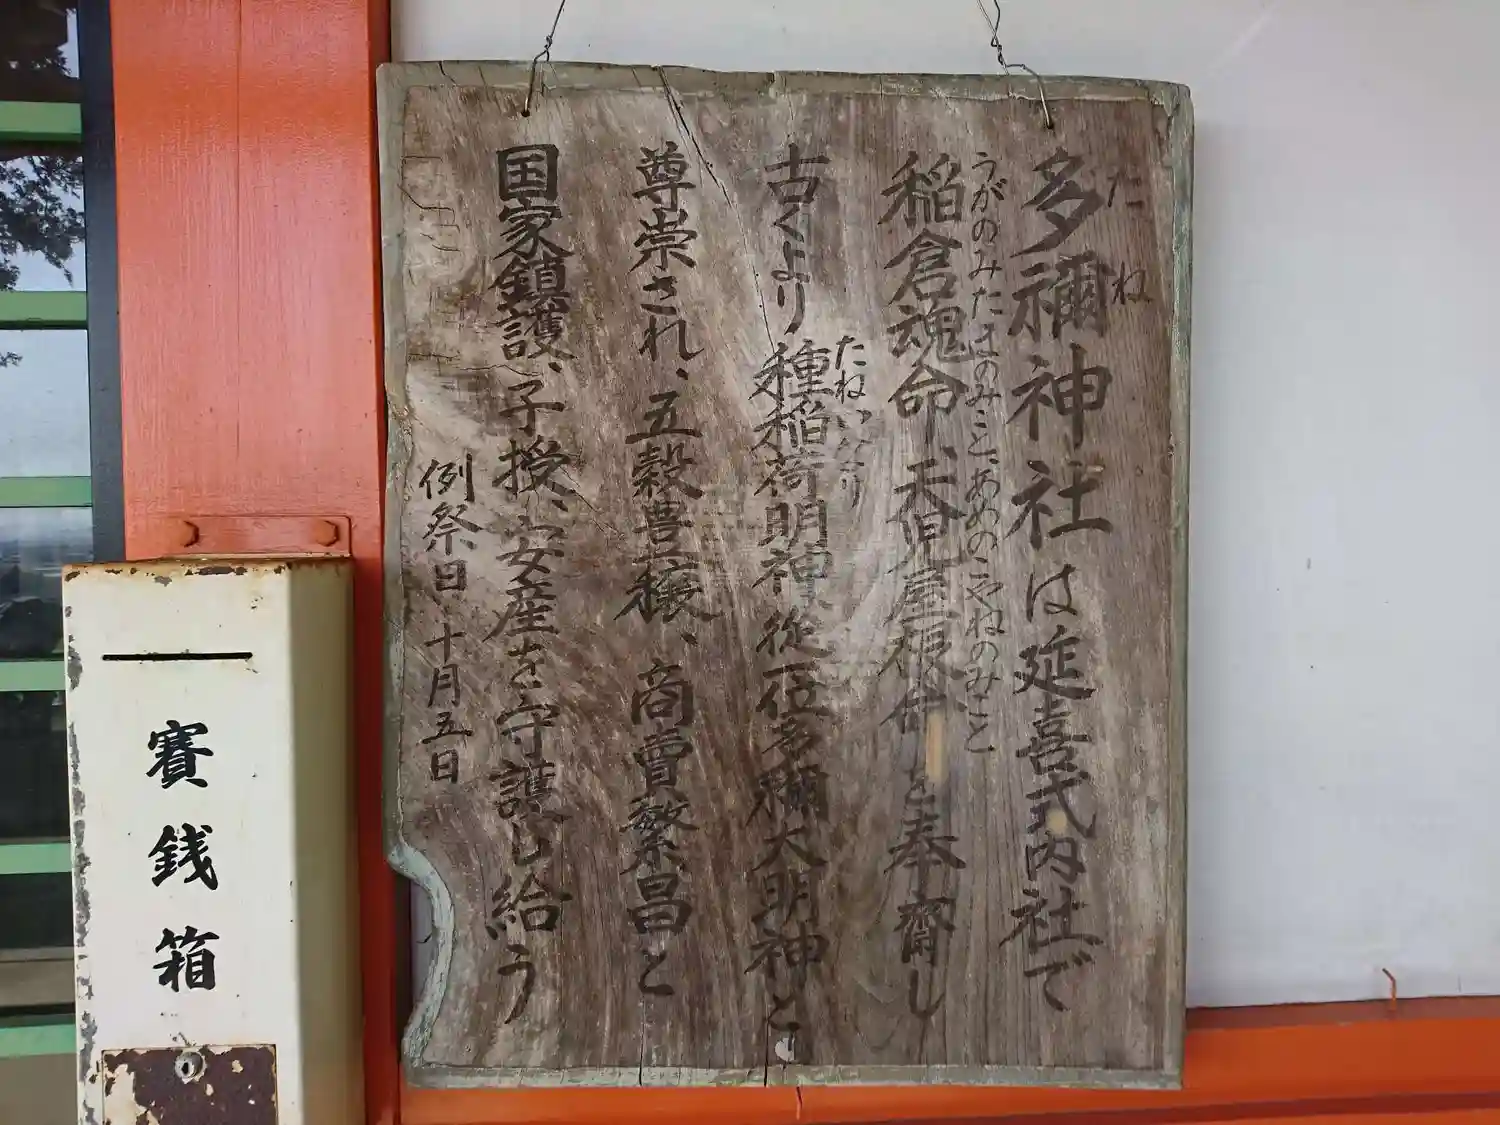 たね
多禰神社は延喜式内社で
うがのみたまのみこと、あめのこやねのみこと
稲倉魂命、天児屋根命を奉齋し
たねいなり
古くより種稲荷明神、従一位多禰大明神と
尊崇され、五穀豊穣、商賣繁昌と
国家鎮護、子授、安産を守護し給う
例祭日 十月五日
賽銭箱